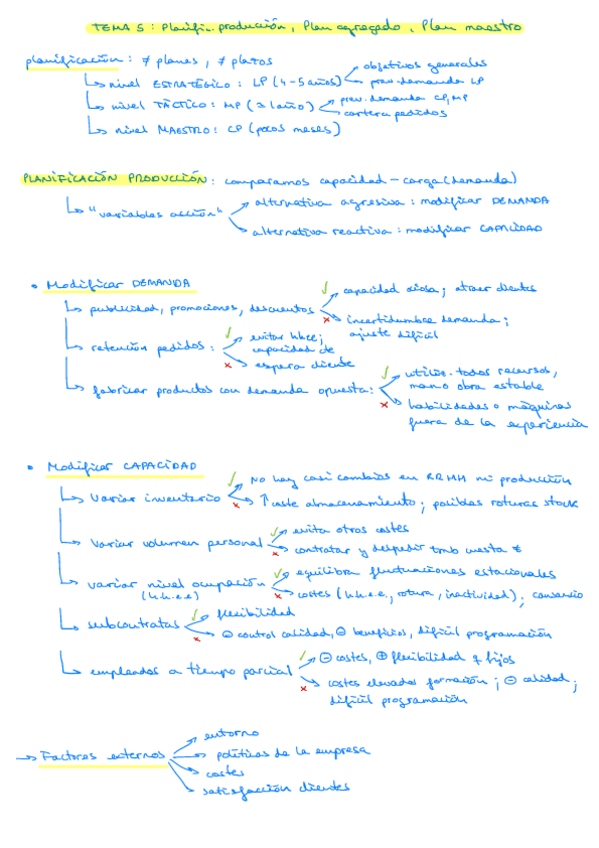 TEMA 5: Planific. producción, Plan agregado, Plan maestro
planificación: ≠ planes, ≠ plazos
↳ nivel ESTRATÉGICO: LP (4-5 años) objetivos generales
prev. demanda LP
↳ nivel TÁCTICO: MP (≥ 1 año) prev. demanda CP, MP
cartera pedidos
↳ nivel MAESTRO: CP (pocos meses)
PLANIFICACIÓN PRODUCCIÓN: comparamos capacidad - carga (demanda)
↳ "variables acción" alternativa agresiva: modificar DEMANDA
alternativa reactiva: modificar CAPACIDAD
• Modificar DEMANDA
↳ publicidad, promociones, descuentos ✓ capacidad ociosa; atraer clientes
× incertidumbre demanda;
ajuste difícil
↳ retención pedidos: ✓ evitar hhee;
capacidad de
× espera cliente
↳ fabricar productos con demanda opuesta: ✓ utiliz. todos recursos,
mano obra estable
× habilidades o máquinas
fuera de la experiencia
• Modificar CAPACIDAD
↳ Variar inventario ✓ No hay casi cambios en RRHH ni producción
× ↑ coste almacenamiento; posibles roturas stock
↳ Variar volumen personal ✓ evita otros costes
× contratar y despedir tmb cuesta €
↳ variar nivel ocupación ✓ equilibra fluctuaciones estacionales
(h.h.e.e) × costes (h.h.e.e., rotura, inactividad); cansancio
↳ subcontratas ✓ flexibilidad
× ⊖ control calidad, ⊖ beneficios, difícil programación
↳ empleados a tiempo parcial ✓ ⊖ costes, ⊕ flexibilidad q fijos
× costes elevados formación; ⊖ calidad;
difícil programación
→ Factores externos entorno
políticas de la empresa
costes
satisfacción clientes